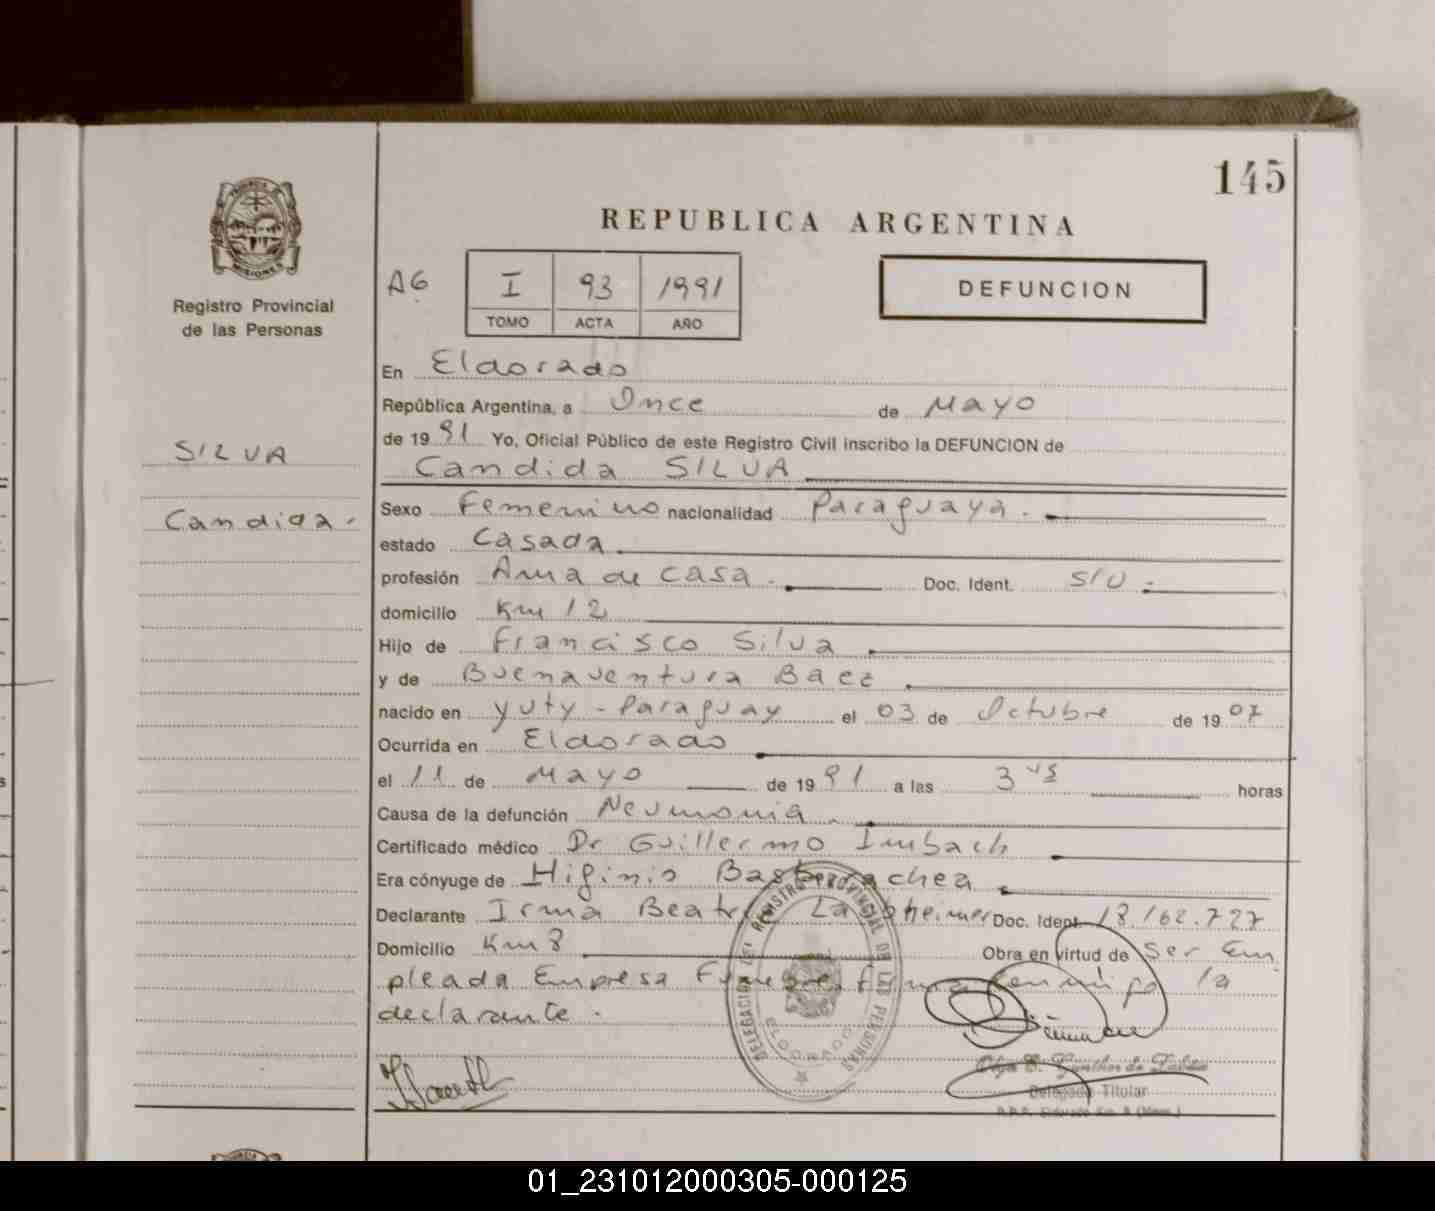 145
PROVINCIA DE
MISIONES
Registro Provincial
de las Personas
REPUBLICA ARGENTINA
AG
I 93 1991
TOMO ACTA AÑO
DEFUNCION
En Eldorado
República Argentina, a Once de Mayo
de 1991 Yo, Oficial Público de este Registro Civil inscribo la DEFUNCION de
SILVA
Candida SILVA
Candida.
Sexo Femenino nacionalidad Paraguaya.
estado Casada.
profesión Ama de casa. Doc. Ident. S/U.
domicilio Km 12
Hijo de Francisco Silva
y de Buenaventura Baez
nacido en Yuty - Paraguay el 03 de Octubre de 1907
Ocurrida en Eldorado
el 11 de Mayo de 1991 a las 3 horas
Causa de la defunción Neumonia.
Certificado médico Dr Guillermo Imbach
Era cónyuge de Higinio Basterrachea
Declarante Irma Doc. Ident. 18.162.727
Domicilio Km 8 Obra en virtud de Ser Em
pleada Empresa Funebre firma conmigo la
declarante.
DELEGACION DEL REGISTRO PROVINCIAL DE LAS PERSONAS
ELDORADO
Delegada Titular
01_231012000305-000125